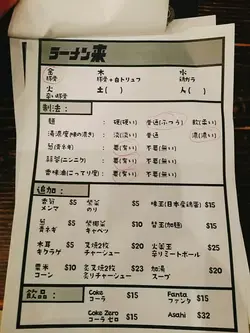 ラーメン来
金 木 水
豚骨 豚骨+白トリュフ 鶏ガラ
火 土( ) 人( )
辛い豚骨
制法:
麺 硬(硬い) 普通(ふつう) 軟(柔い)
湯濃度(味の濃さ) 淡(淡い) 普通 濃(濃い)
葱(青ネギ) 要(有) 不要(無)
蒜蓉(ニンニク) 要(有) 不要(無)
香味油(こってり度) 要(有) 不要(無)
追加:
笋 $5 紫菜 $5 味玉(日本産鶏蛋) $15
メンマ のり
葱 $5 椰菜 $5 替玉(加麺) $15
青ネギ キャベツ
木耳 $5 叉焼2枚 $20 火釜玉 $25
キクラゲ チャーシュー 辛リミートボール
粟米 $10 炙叉焼2枚 $23 加湯 $20
コーン 炙りチャーシュー スープ
飲品:
Coke $15 Fanta $15
コーラ ファンタ
Coke Zero $15 Asahi $32
コーラ ゼロ